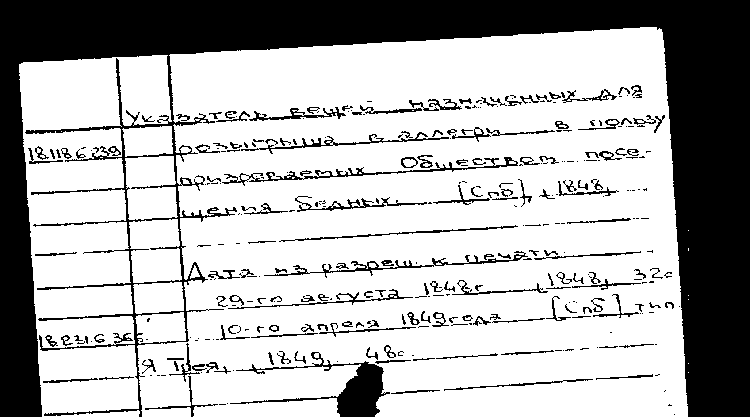 Указатель вещей назначенных для
18.118.6.239 розыгрыша в аллегри в пользу
призреваемых Обществом посе-
щения бедных. [Спб], 1848,
Дата из разреш. к печати
29-го августа 1848г. 1848, 32с
10-го апреля 1849года [Спб] тип
Я Трея, 1849, 48с.